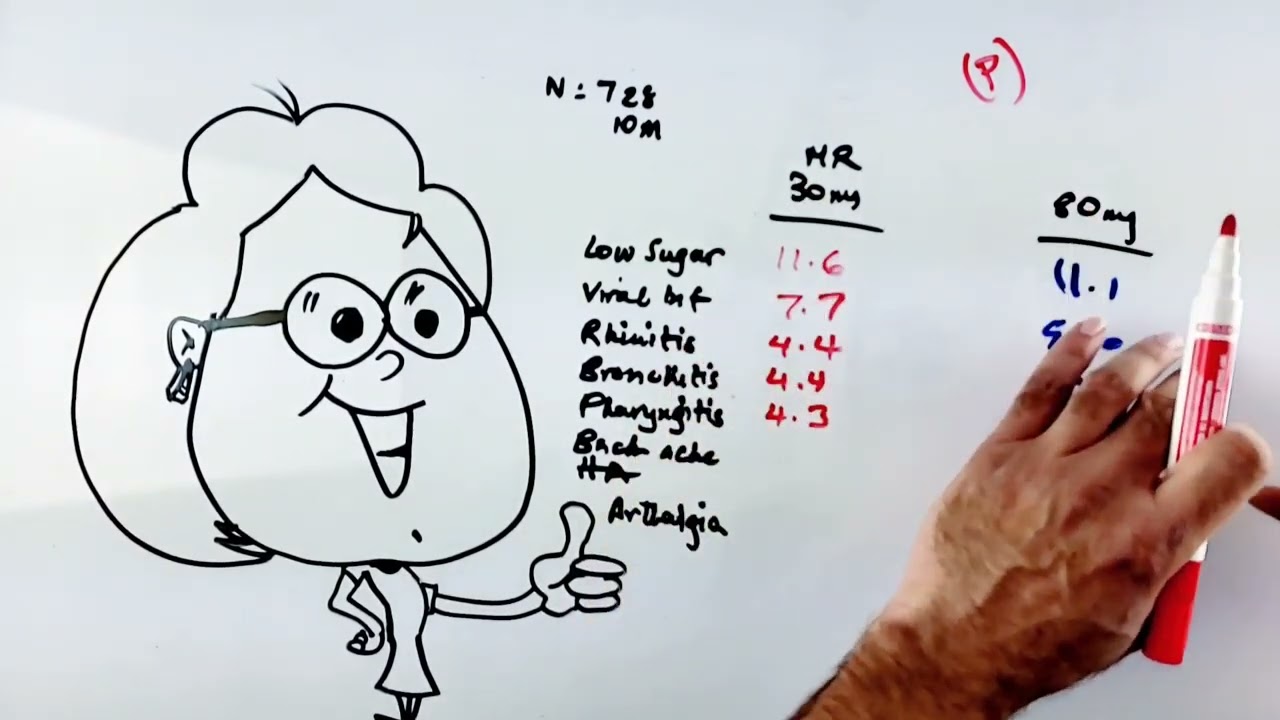 N = 728
10M
(P)
MR
30mg
80mg
Low Sugar 11.6 11.1
Viral Inf 7.7
Rhinitis 4.4
Bronchitis 4.4
Pharyngitis 4.3
Back ache
HA
Arthalgia